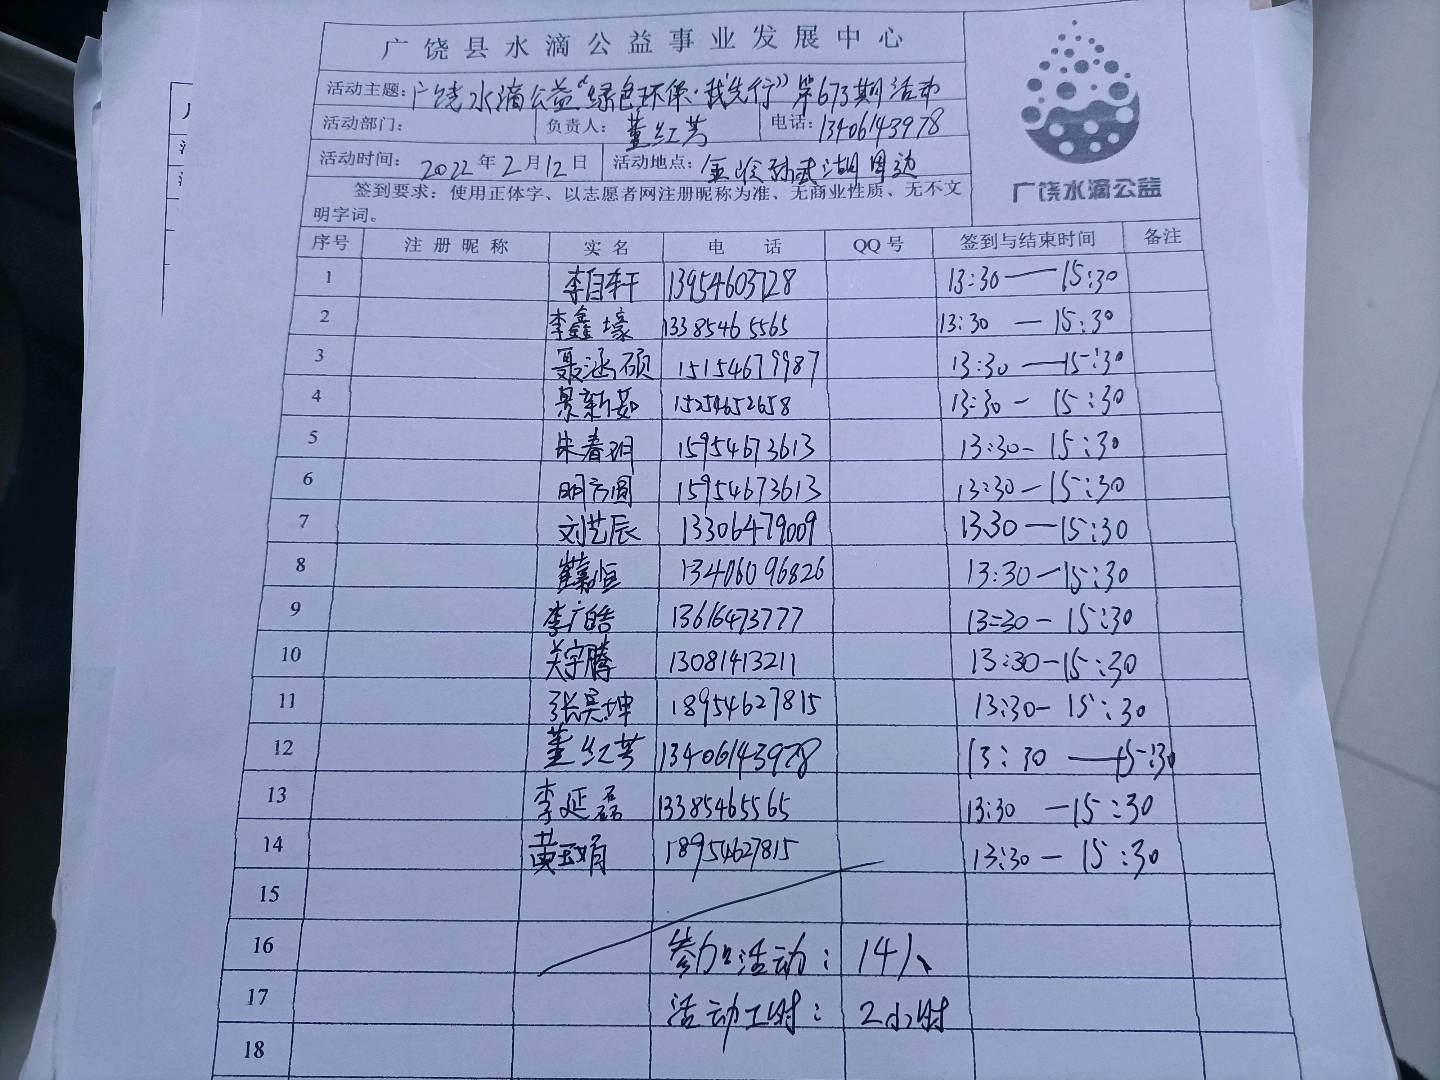 广饶县水滴公益事业发展中心
活动主题：广饶水滴公益“绿色环保·我先行”第673期活动
活动部门： 负责人：董红芳 电话：13406143978
活动时间：2022年2月12日 活动地点：孙武湖周边
签到要求：使用正体字、以志愿者网注册昵称为准、无商业性质、无不文
明字词。
广饶水滴公益
序号 注册昵称 实名 电话 QQ号 签到与结束时间 备注
1 李自轩 13954603728 13:30—15:30
2 李鑫壕 13385465565 13:30—15:30
3 聂涵硕 15154679987 13:30—15:30
4 景新茹 15254652658 13:30-15:30
5 朱春玥 15954673613 13:30-15:30
6 明方圆 15954673613 13:30-15:30
7 刘艺辰 13306479009 1330—15:30
8 崔嘉恒 13406096826 13:30-15:30
9 李广皓 13616473777 13:30-15:30
10 关宇腾 13081413211 13:30-15:30
11 张昊坤 18954627815 13:30-15:30
12 董红芳 13406143978 13:30—15:30
13 李延磊 13385465565 13:30—15:30
14 黄玉娟 18954627815 13:30-15:30
15
16 参加活动：14人
17 活动工时：2小时
18